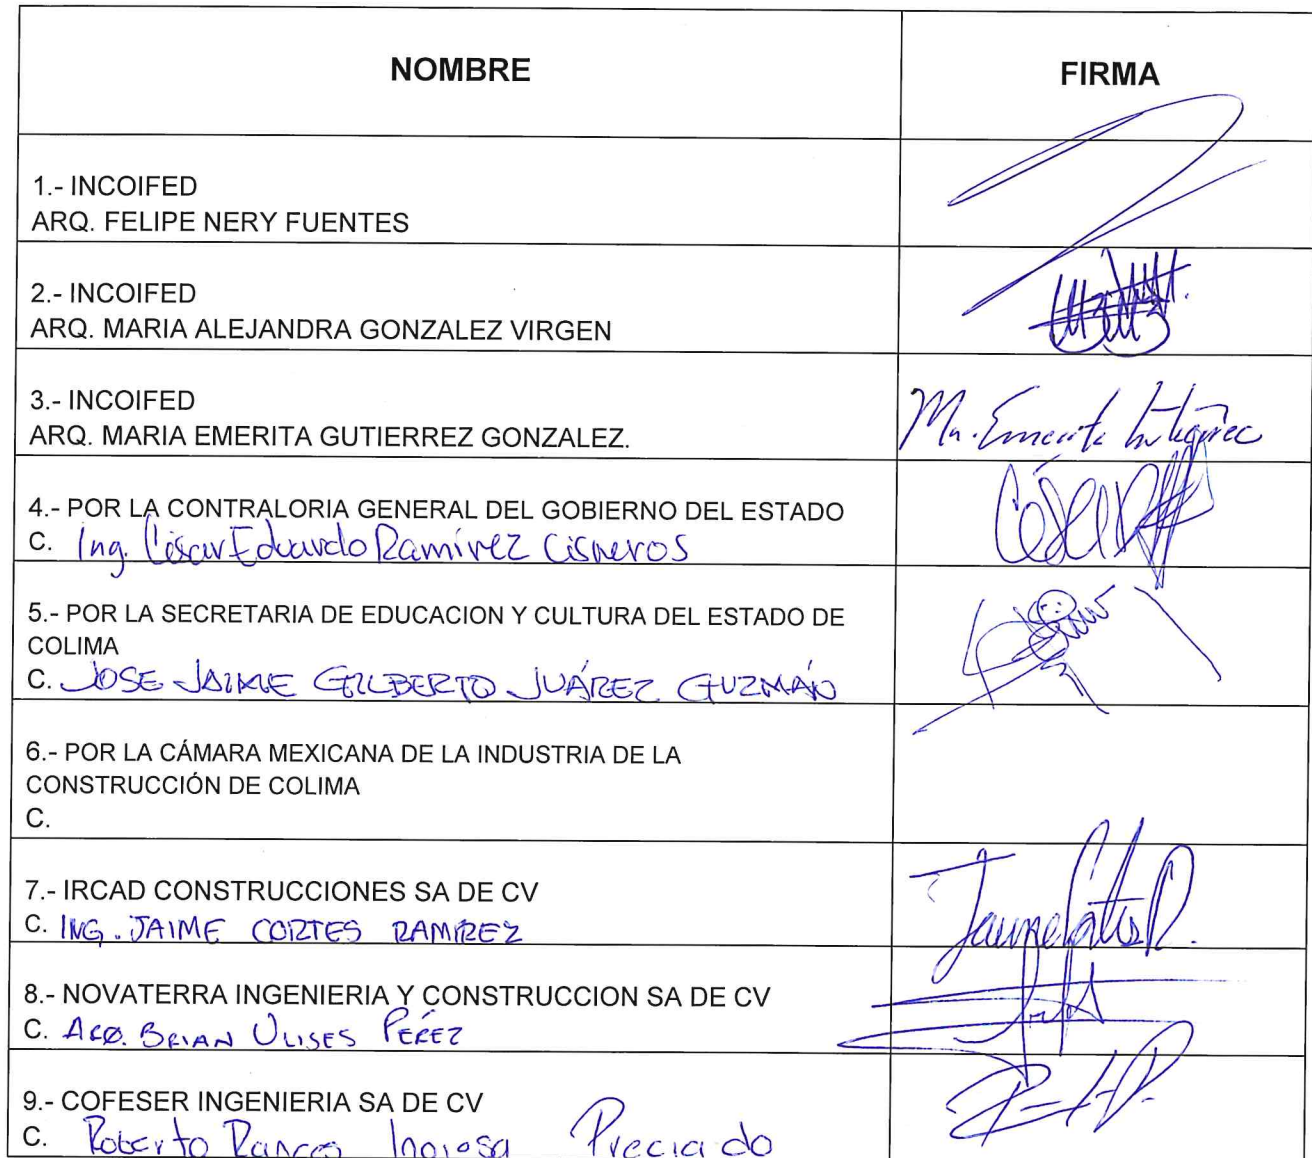 NOMBRE FIRMA
1.- INCOIFED
ARQ. FELIPE NERY FUENTES
2.- INCOIFED
ARQ. MARIA ALEJANDRA GONZALEZ VIRGEN
3.- INCOIFED
ARQ. MARIA EMERITA GUTIERREZ GONZALEZ.
Ma. Emerita Gutiérrez
4.- POR LA CONTRALORIA GENERAL DEL GOBIERNO DEL ESTADO
C. Ing. César Eduardo Ramírez Cisneros
César
5.- POR LA SECRETARIA DE EDUCACION Y CULTURA DEL ESTADO DE
COLIMA
C. JOSE JAIME GILBERTO JUÁREZ GUZMÁN
6.- POR LA CÁMARA MEXICANA DE LA INDUSTRIA DE LA
CONSTRUCCIÓN DE COLIMA
C.
7.- IRCAD CONSTRUCCIONES SA DE CV
C. ING. JAIME CORTES RAMIREZ
Jaime Cortes R.
8.- NOVATERRA INGENIERIA Y CONSTRUCCION SA DE CV
C. ARQ. BRIAN ULISES PÉREZ
9.- COFESER INGENIERIA SA DE CV
C. Roberto Preciado